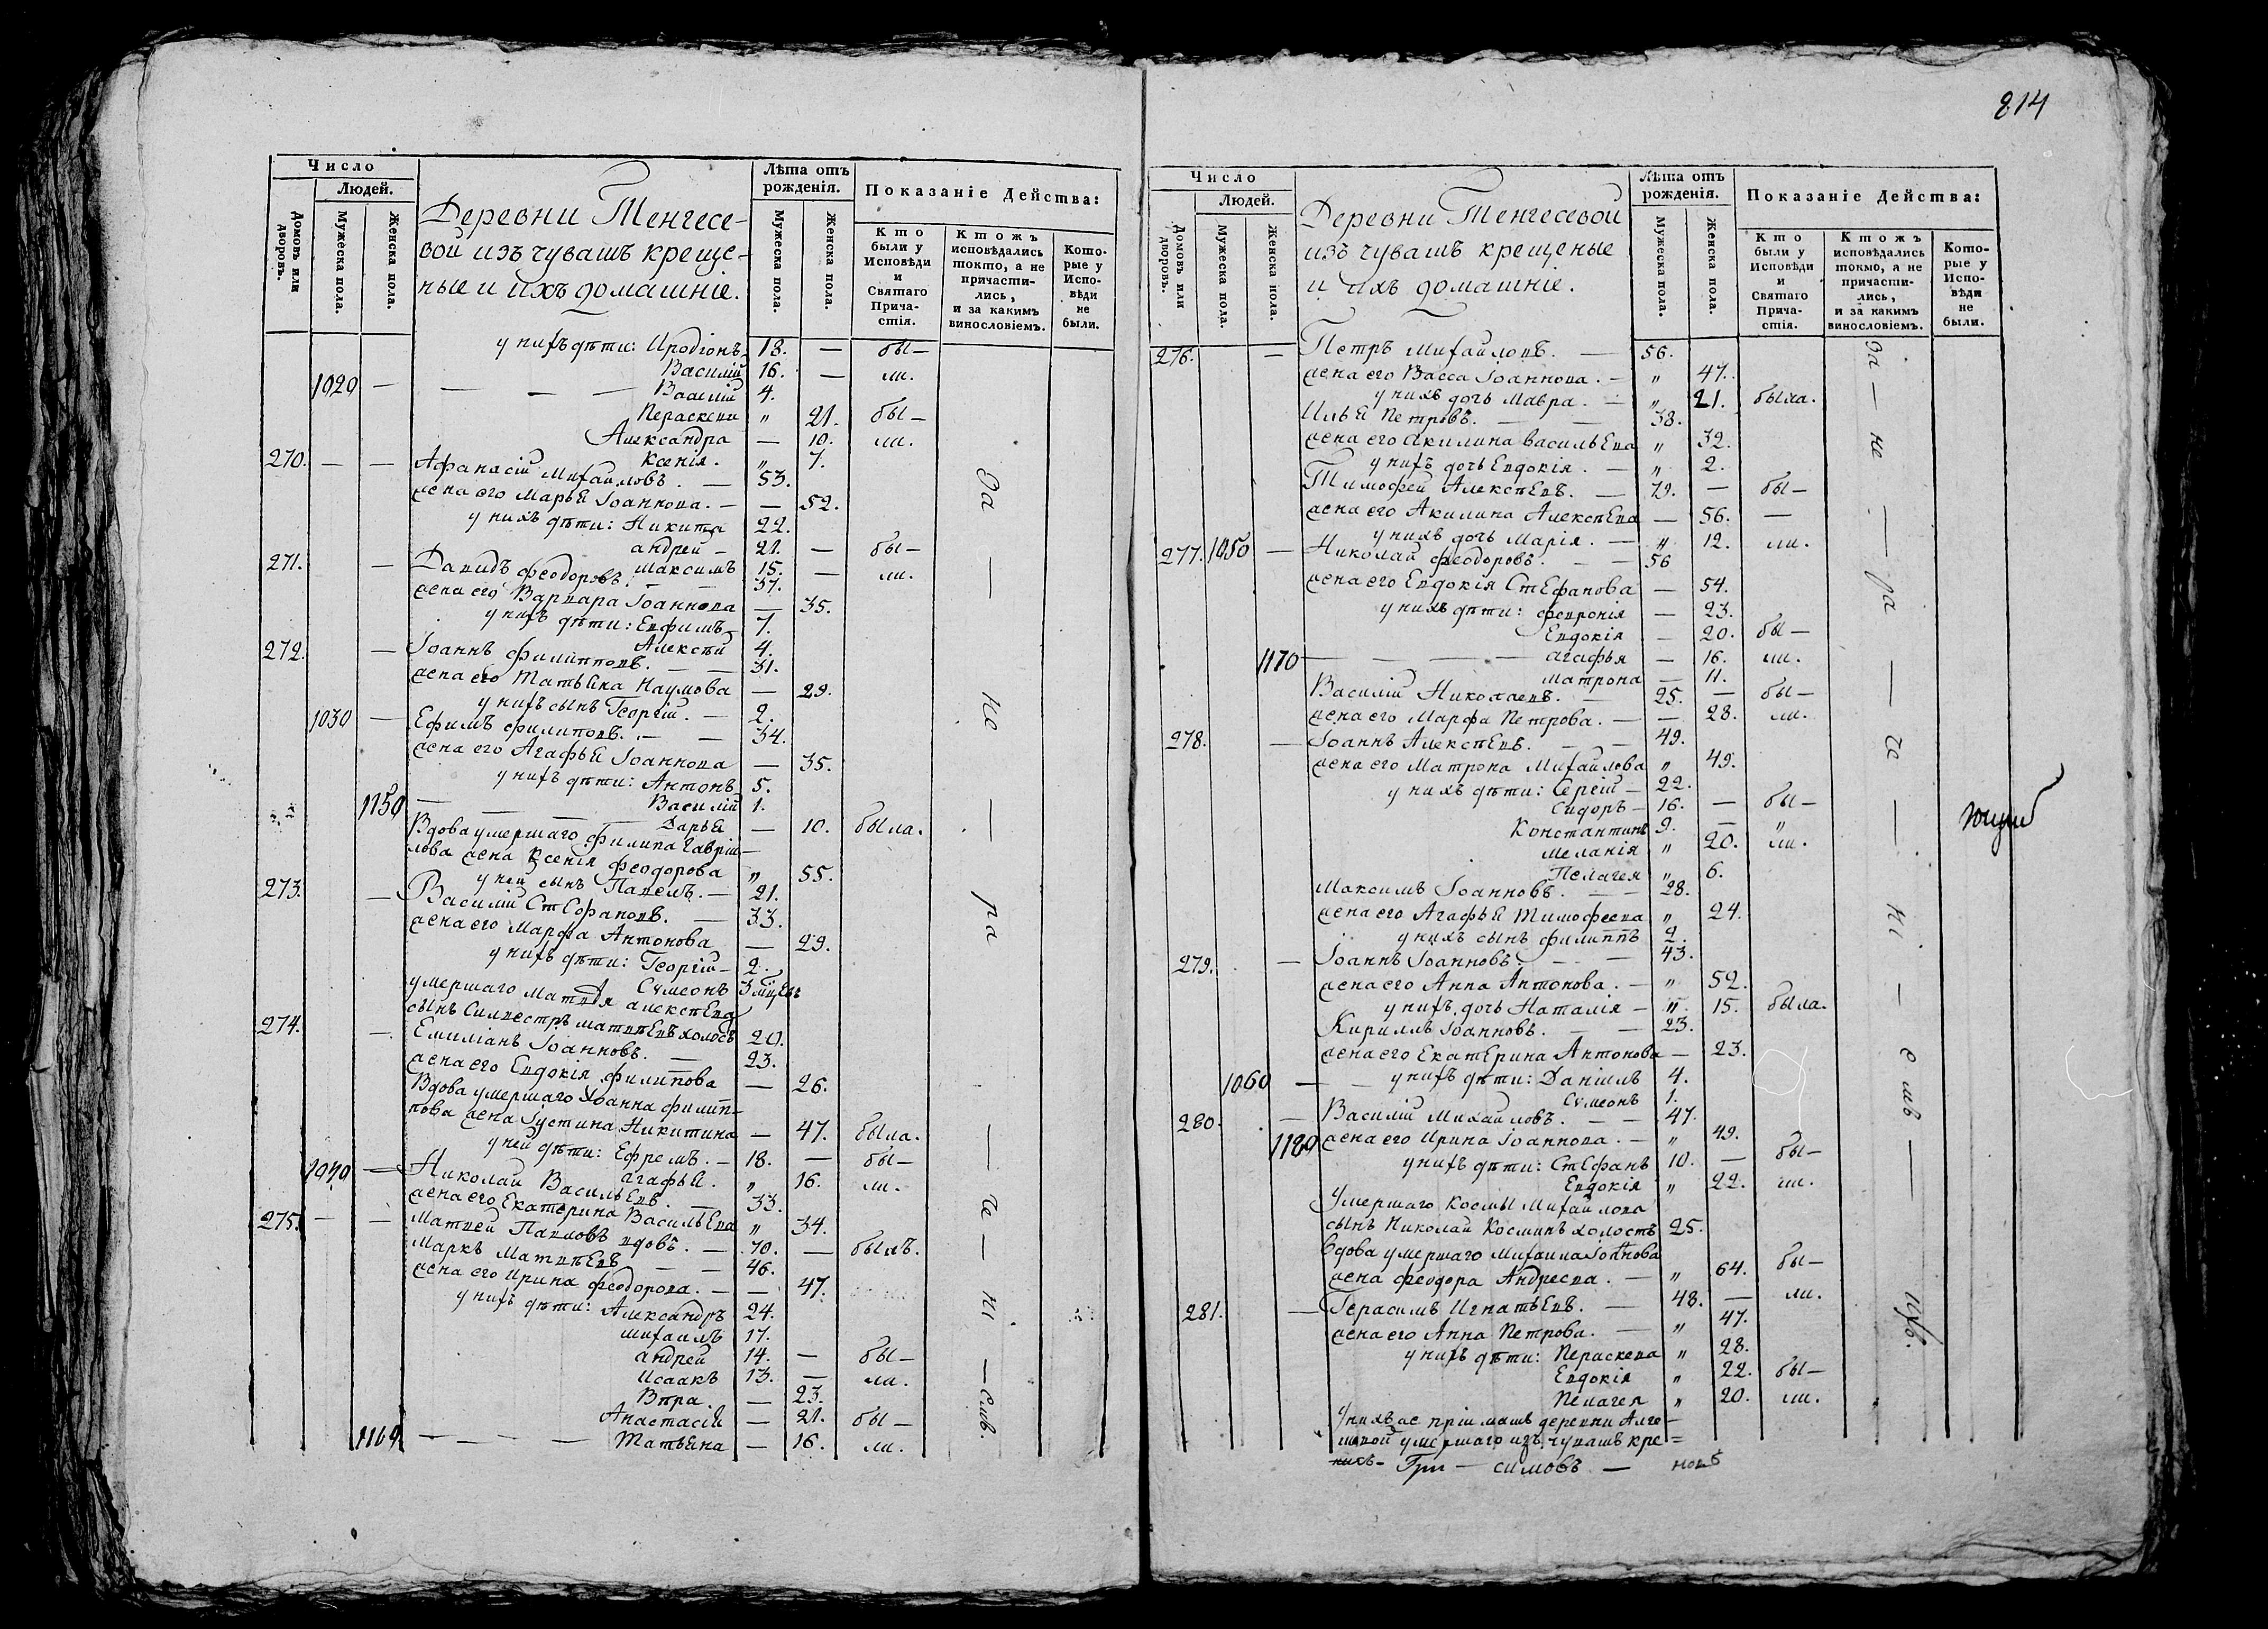 814
Число
Людей.
Домовъ или дворовъ.
Мужеска пола.
Женска пола.
Деревни Тенгесе-
вой изъ чувашъ креще-
ные и ихъ домашніе.
Лѣта отъ рожденія.
Мужеска пола.
Женска пола.
Показаніе Дѣйства:
Кто были у Исповѣди и Святаго Причастія.
Ктожъ исповѣдались токмо, а не причастились, и за какимъ винословіемъ.
Которые у Исповѣди не были.
у нихъ дѣти: Иродіонъ 18. — бы—
Василій 16. — ли.
1020 — Василій 4.
Пераскеви „ 21. бы—
Александра — 10. ли.
Ксенія. „ 7.
270. — — Афанасій Михайловъ. — 53.
жена его Марья Іоаннова. — — 52.
у нихъ дѣти: Никита 22.
Андрей — 21. — бы—
Максимъ 15. — ли.
271. — Давидъ Феодоровъ. 37.
жена его Варвара Іоаннова — 35.
у нихъ дѣти: Евфимъ 7.
Алексѣй 4.
272. — Іоаннъ Филипповъ. — — 31.
жена его Татьяна Наумова — 29.
у нихъ сынъ Георгій. — 2.
1030 — Ефимъ Филиповъ. — — 34.
жена его Агафья Іоаннова — 35.
у нихъ дѣти: Антонъ 5.
Василій 1.
1150 — — — Дарья — 10. была.
Вдова умершаго Филипа Гаврии-
лова жена Ксенія Феодорова „ 55.
у ней сынъ Павелъ. — 21.
273. — Василій Стефановъ. — 33.
жена его Марфа Антонова — 29.
у нихъ дѣти: Георгій — 2.
Сѵмеонъ 3 мѣцевъ
умершаго Матвѣя Алексѣева
сынъ Силвестръ Матвѣевъ холостъ 20.
274. — Емиліанъ Іоанновъ. — 23.
жена его Евдокія Филипова — 26.
Вдова умершаго Іоанна Филип-
пова жена Іустина Никитина — 47. была.
у ней дѣти: Ефремъ. — 18. — бы—
Агафья. „ 16. ли.
1040 — Николай Васильевъ. — 33.
жена его Екатерина Васильева „ 34.
275. — — Матвей Павловъ вдовъ. — 70. — былъ.
Маркъ Матвѣевъ — — 46.
жена его Ирина Феодорова. — — 47.
у нихъ дѣти: Александръ 24.
Михаилъ 17.
Андрей 14. — бы—
Исаакъ 13. — ли.
Вѣра. — 23.
Анастасія — 21. бы—
1160 — — — — Татьяна — 16. ли.
За — не — ра — че — ні — емъ.
Число
Людей.
Домовъ или дворовъ.
Мужеска пола.
Женска пола.
Деревни Тенгесевой
изъ чувашъ крещеные
и ихъ домашніе.
Лѣта отъ рожденія.
Мужеска пола.
Женска пола.
Показаніе Дѣйства:
Кто были у Исповѣди и Святаго Причастія.
Ктожъ исповѣдались токмо, а не причастились, и за какимъ винословіемъ.
Которые у Исповѣди не были.
276. — Петръ Михайловъ. — 56.
жена его Васса Іоаннова. — „ 47.
у нихъ дочь Мавра. — „ 21. была.
Илья Петровъ. — — 38.
жена его Акилина Васильева „ 32.
у нихъ дочь Евдокія. — „ 2.
Тимофей Алексѣевъ. — 79. — бы—
жена его Акилина Алексѣева — 56. —
у нихъ дочь Марія. — „ 12. ли.
277. 1050 — Николай Феодоровъ. — — 56
жена его Евдокія Стефанова — 54.
у нихъ дѣти: Февронія — 23.
Евдокія — 20. бы—
1170 — — — — Агафья — 16. ли.
Матрона — 11.
Василій Николаевъ. — 25. — бы—
жена его Марфа Петрова. — — 28. ли.
278. — Іоаннъ Алексѣевъ. — — 49.
жена его Матрона Михайлова „ 49.
у нихъ дѣти: Сергій — 22.
Сидоръ — 16. — бы—
Константинъ 9. — „
Меланія „ 20. ли.
Пелагея „ 6.
Максимъ Іоанновъ. — — 28.
жена его Агафья Тимофеева „ 24.
у нихъ сынъ Филиппъ 2.
279. — Іоаннъ Іоанновъ. — — 43.
жена его Анна Антонова. — „ 52.
у нихъ дочь Наталія — „ 15. была.
Кириллъ Іоанновъ. — — 23.
жена его Екатерина Антонова — 23.
1060 — — у нихъ дѣти: Даніилъ 4.
Сѵмеонъ 1.
280. — Василій Михайловъ. — — 47.
1180 жена его Ирина Іоаннова. — „ 49.
у нихъ дѣти: Стефанъ 10. — бы—
Евдокія „ 22. ли.
Умершаго Космы Михайлова
сынъ Николай Косминъ холостъ 25.
Вдова умершаго Михаила Іоаннова
жена Феодора Андреева. — „ 64. бы—
281. — Герасимъ Игнатьевъ. — 48. — ли.
жена его Анна Петрова. — „ 47.
у нихъ дѣти: Пераскева „ 28.
Евдокія „ 22. бы—
Пелагея „ 20. ли.
У нихъ же пріймашъ деревни Алге-
шевой умершаго изъ чувашъ кре=
За — не — ра — че — ні — емъ —